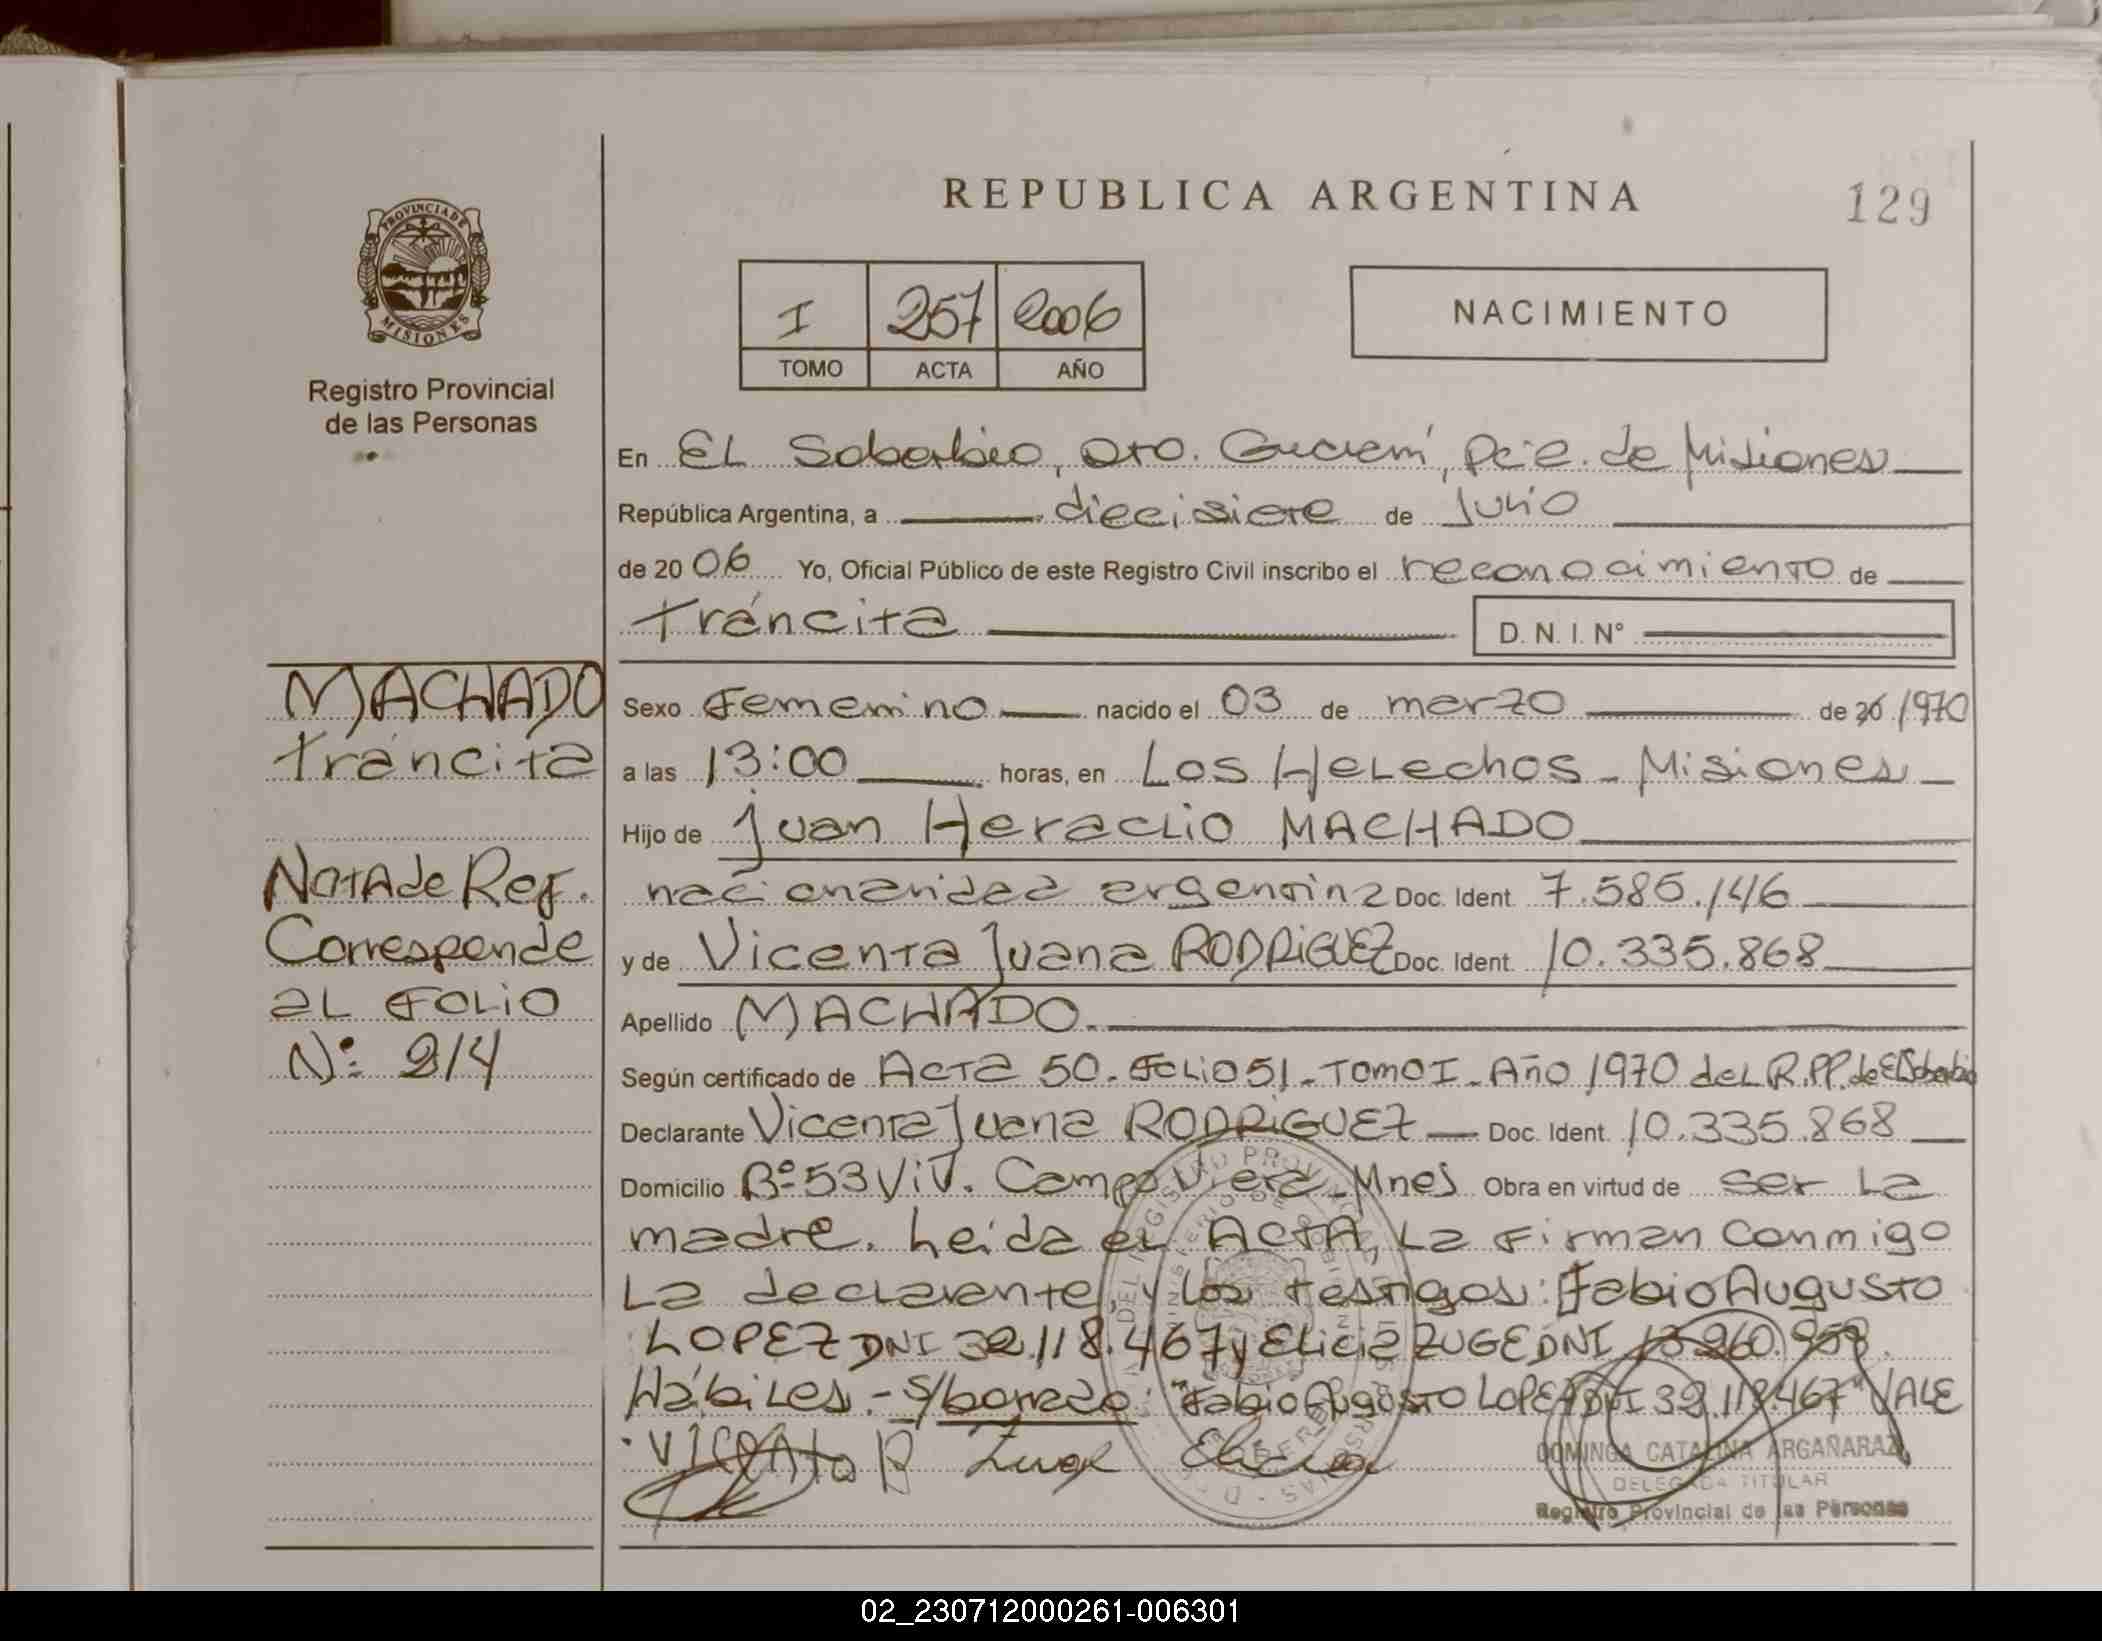 REPUBLICA ARGENTINA
129
PROVINCIA DE
MISIONES
Registro Provincial
de las Personas
I 257 2006
TOMO ACTA AÑO
NACIMIENTO
En EL Soberbio, Dto. Guaraní, Pcia. de Misiones
República Argentina, a diecisiete de Julio
de 2006 Yo, Oficial Público de este Registro Civil inscribo el reconocimiento de
Tráncita D. N. I. N°
MACHADO
Tráncita
Sexo Femenino nacido el 03 de marzo de 1970
a las 13:00 horas, en Los Helechos - Misiones
Hijo de Juan Heraclio MACHADO
nacionalidad argentina Doc. Ident. 7.585.146
y de Vicenta Juana RODRIGUEZ Doc. Ident. 10.335.868
Apellido MACHADO.
Según certificado de Acta 50. Folio 51 - Tomo I - Año 1970 del R.PP. de El Soberbio
Declarante Vicenta Juana RODRIGUEZ Doc. Ident. 10.335.868
Domicilio B° 53 Viv. Campo Viera - Mnes Obra en virtud de ser la
madre. Leída el ACTA, la firman conmigo
la declarante, y los testigos: Fabio Augusto
LOPEZ DNI 32.118.467 y Elicia ZUGE DNI
Hábiles. - s/borrado: "Fabio Augusto LOPEZ DNI 32.118.467" VALE
Nota de Ref.
Corresponde
al FOLIO
N°: 214
Zuge Elicia
DOMINGA CATALINA ARGAÑARAZ
DELEGADA TITULAR
Registro Provincial de las Personas
02_230712000261-006301